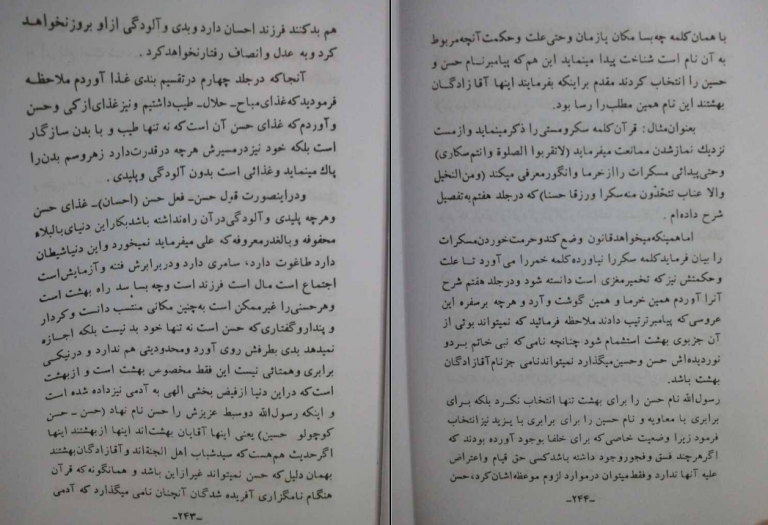 هم بدکنند فرزند احسان دارد وبدی وآلودگی ازاو بروزنخواهد
کرد وبه عدل وانصاف رفتارنخواهدکرد .
آنجاکه درجلد چهارم درتقسیم بندی غذا آوردم ملاحظه
فرمودیدکه غذای مباح ـ حلال ـ طیب داشتیم ونیزغذای ازکی وحسن
وآوردم که غذای حسن آن است که نه تنها طیب و با بدن سازگار
است بلکه خود نیزدرمسیرش هرچه درقدرت دارد زهروسم بدن را
پاك مینماید وغذائی است بدون آلودگی وپلیدی .
ودراینصورت قول حسن ـ فعل حسن (احسان) ـ غذای حسن
وهرچه پلیدی وآلودگی درآن راه نداشته باشد بکاراین دنیای بالبلاء
محفوفه وبالغدرمعروفه که علی میفرماید نمیخورد واین دنیاشیطان
دارد طاغوت دارد، سامری دارد ودربرابرش فتنه وآزمایش است
اجتماع است مال است فرزند است وچه بسا سد راه بهشت است
وهرحسنی راغیرممکن است به چنین مکانی منتسب دانست وکردار
و پندار وگفتاری که حسن است نه تنها خود بد نیست بلکه اجازه
نمیدهد بدی بطرفش روی آورد ومحدودیتی هم ندارد و درنیکی
برابری وهمتائی نیست این فقط مخصوص بهشت است و ازبهشت
است که دراین دنیا ازفیض بخشی الهی به آدمی نیزداده شده است
و اینکه رسول الله دوسبط عزیزش را حسن نام نهاد (حسن ـ حسن
کوچولو حسین) یعنی اینها آقایان بهشت اند اینها ازبهشتند اینها
اگرحدیث هم هست که سیدشباب اهل الجنةاند وآقازادگان بهشتند
بهمان دلیل که حسن نمیتواند غیرازاین باشد و همانگونه که قرآن
هنگام نامگزاری آفریده شدگان آنچنان نامی میگذارد که آدمی
-۲۴۳-
با همان کلمه چه بسا مکان یازمان وحتی علت وحکمت آنچه مربوط
به آن نام است شناخت پیدا مینماید این هم که پیامبرنام حسن و
حسین را انتخاب کردند مقدم براینکه بفرمایند اینها آقا زادگان
بهشتند این نام همین مطلب را رسا بود.
بعنوان مثال: قرآن کلمه سکرومستی را ذکرمینماید وازمست
نزدیك نمازشدن ممانعت میفرماید (لاتقربوا الصلوة وانتم سکاری)
وحتی پیدائی مسکرات راازخرما وانگورمعرفی میکند (ومن النخیل
والا عناب تتخذون منه سکرا ورزقا حسنا) که درجلد هفتم به تفصیل
شرح داده ام .
اما همینکه میخواهد قانون وضع کند وحرمت خوردن مسکرات
را بیان فرماید کلمه سکررا نیاورده کلمه خمررا می آورد تا علت
وحکمتش نیزکه تخمیرمغزی است دانسته شود ودرجلد هفتم شرح
آنرا آوردم همین خرما و همین گوشت وآرد و هرچه برسفره این
عروسی که پیامبرترتیب دادند ملاحظه فرمائید که نمیتواند بوئی از
آن جزبوی بهشت استشمام شود چنانچه نامی که نبی خاتم بردو
نوردیده اش حسن وحسین میگذارد نمیتواندنامی جزنام آقازادگان
بهشت باشد.
رسول الله نام حسن را برای بهشت تنها انتخاب نکرد بلکه برای
برابری با معاویه و نام حسین را برای برابری با یزید نیزانتخاب
فرمود زیرا وضعیت خاصی که برای خلفا بوجود آورده بودند که
اگرهرچند فسق وفجوربوجود داشته باشد کسی حق قیام واعتراض
علیه آنها ندارد وفقط میتوان درموارد لزوم موعظه اشان کرد، حسن
-۲۴۴-